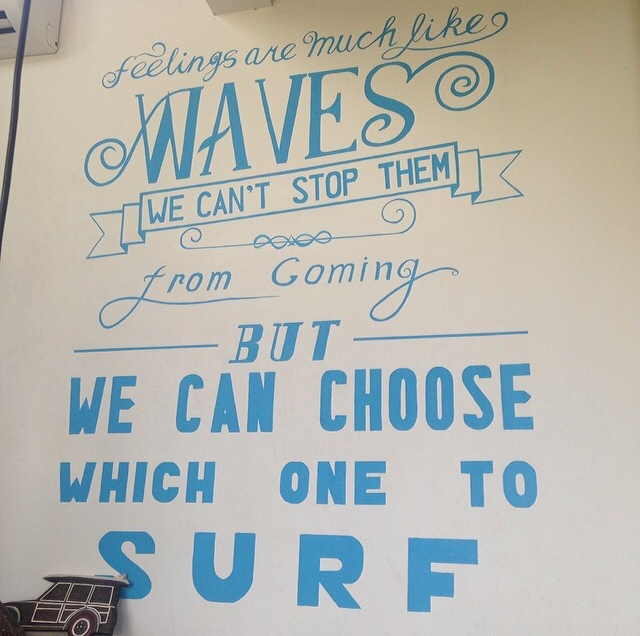 feelings are much like
WAVES
WE CAN'T STOP THEM
from Goming
BUT
WE CAN CHOOSE
WHICH ONE TO
SURF